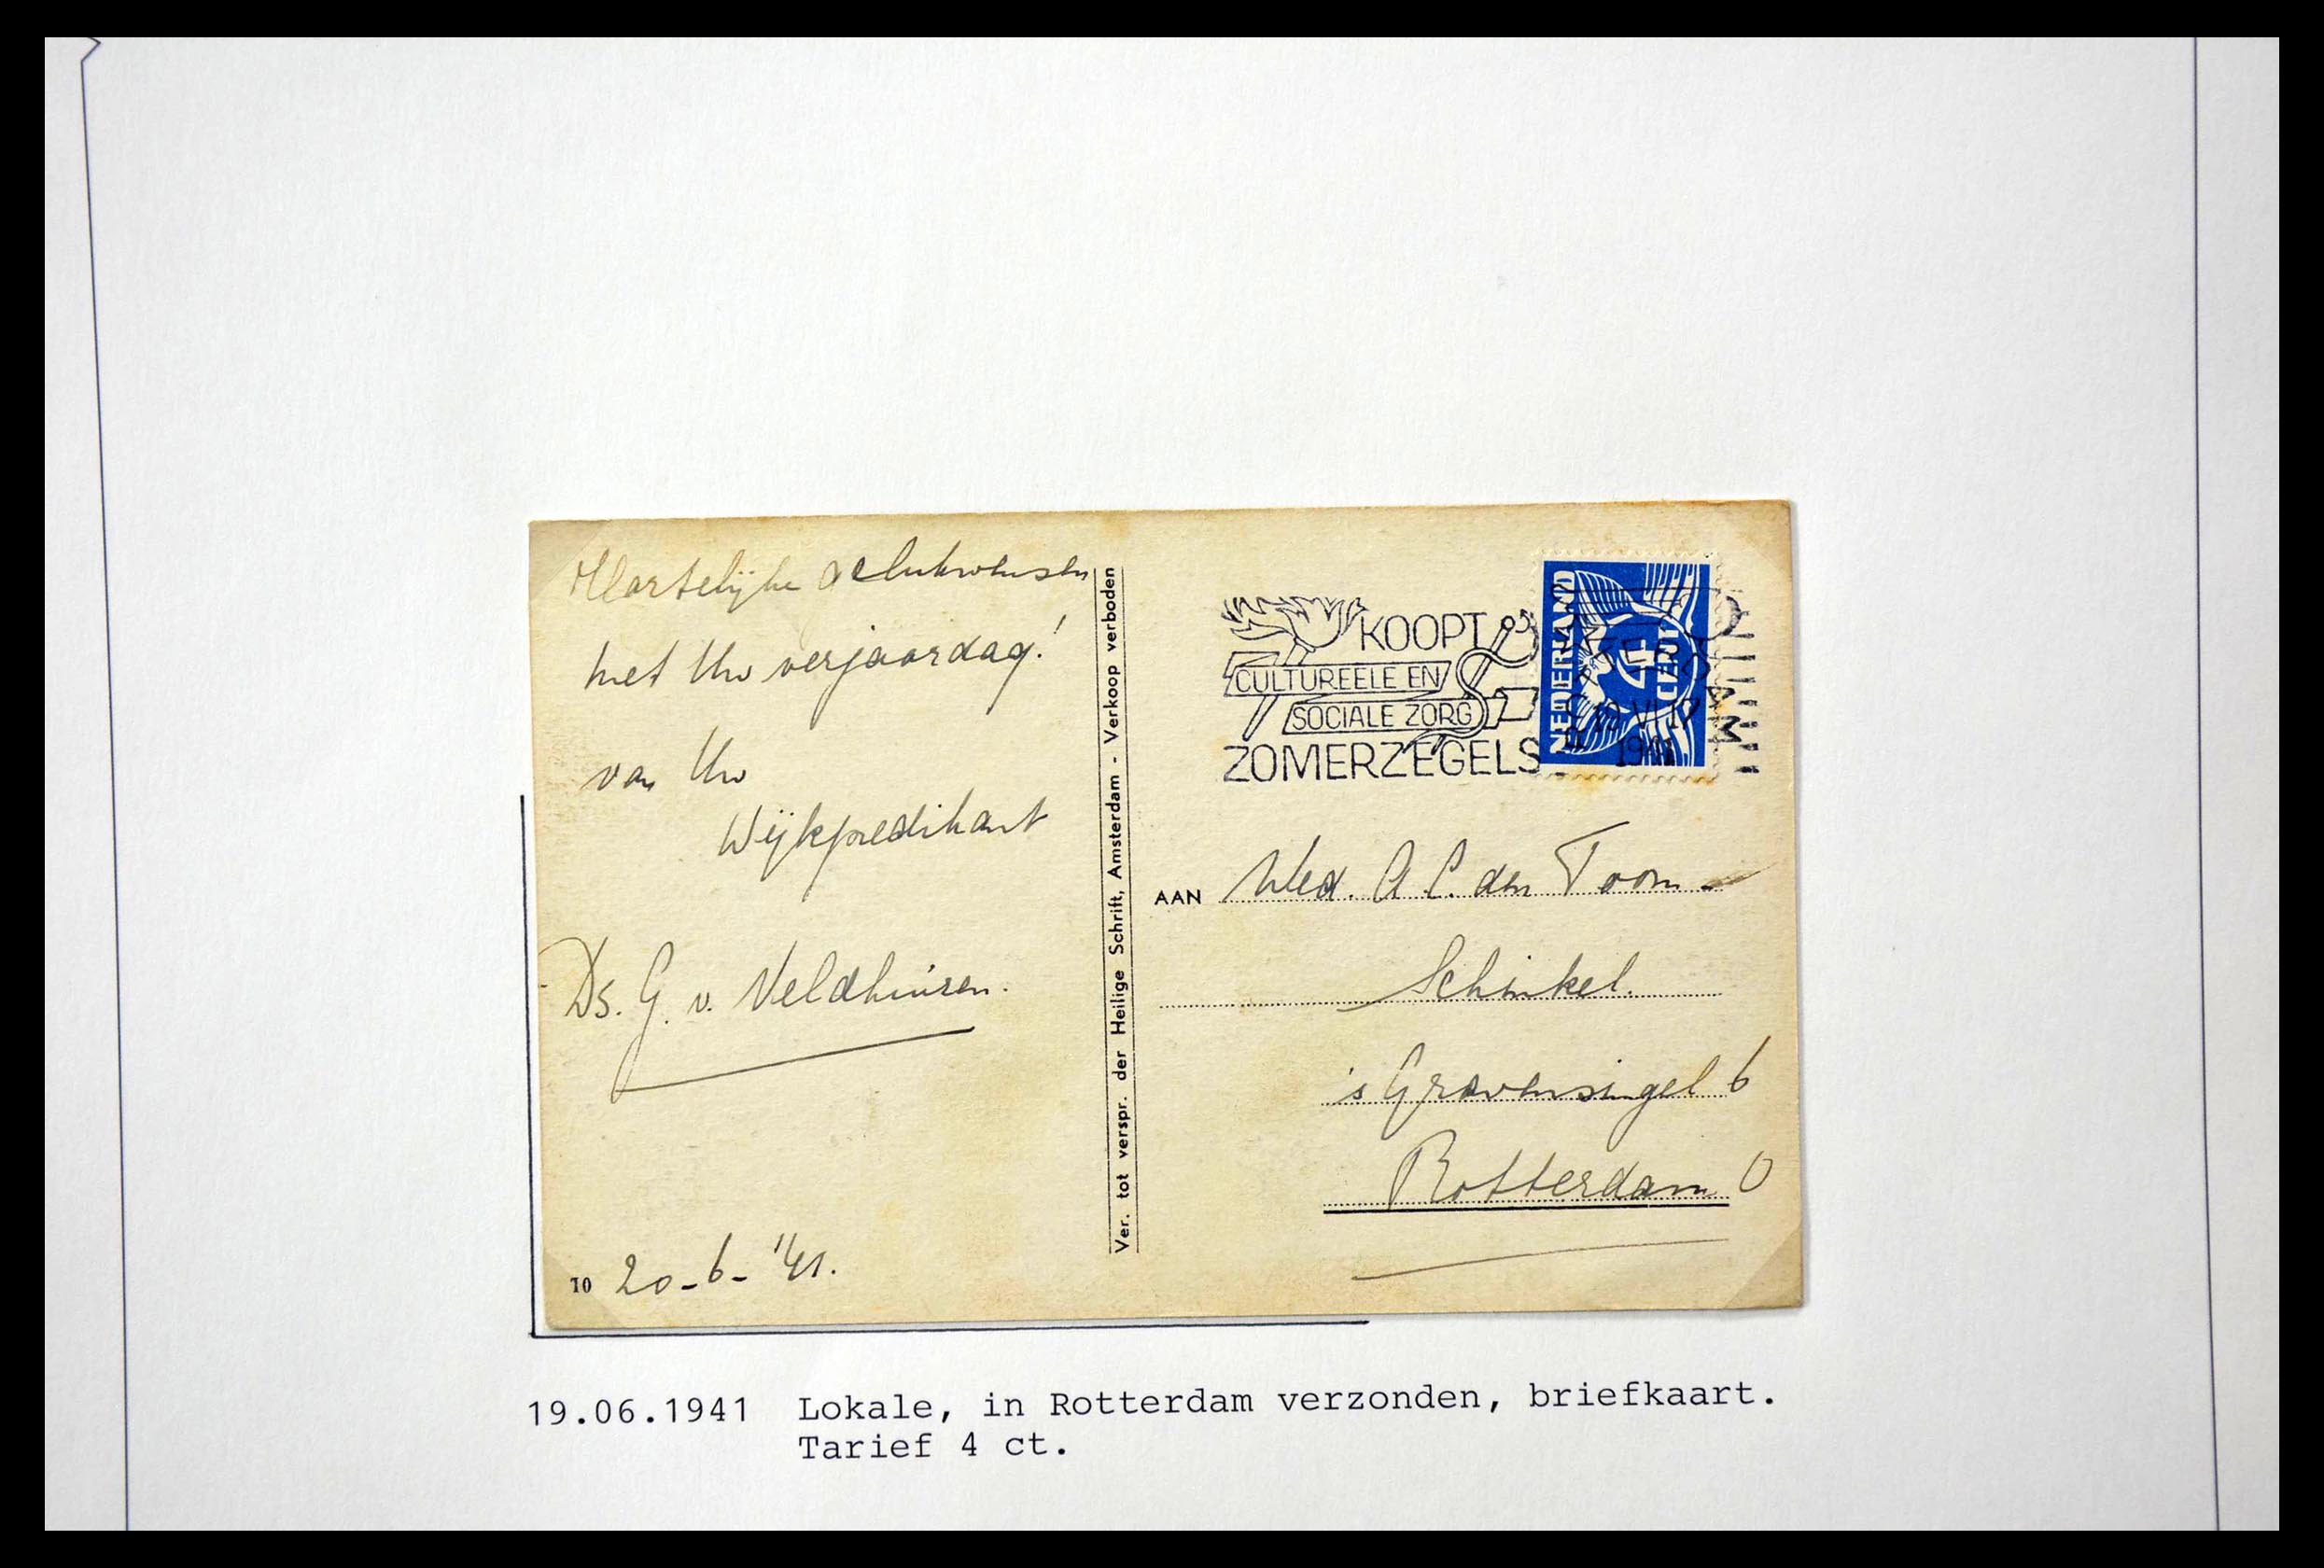 Hartelijke Gelukwensen
met Uw verjaardag!
van Uw
Wijkpredikant
Ds. G. v. Veldhuizen.
10 20-6-'41.
Ver. tot verspr. der Heilige Schrift, Amsterdam - Verkoop verboden
KOOPT
CULTUREELE EN
SOCIALE ZORG
ZOMERZEGELS
NEDERLAND
4
CENT
1941
AAN Wed. A. C. den Toom -
Schinkel.
's Gravensingel 6
Rotterdam O
19.06.1941 Lokale, in Rotterdam verzonden, briefkaart.
Tarief 4 ct.